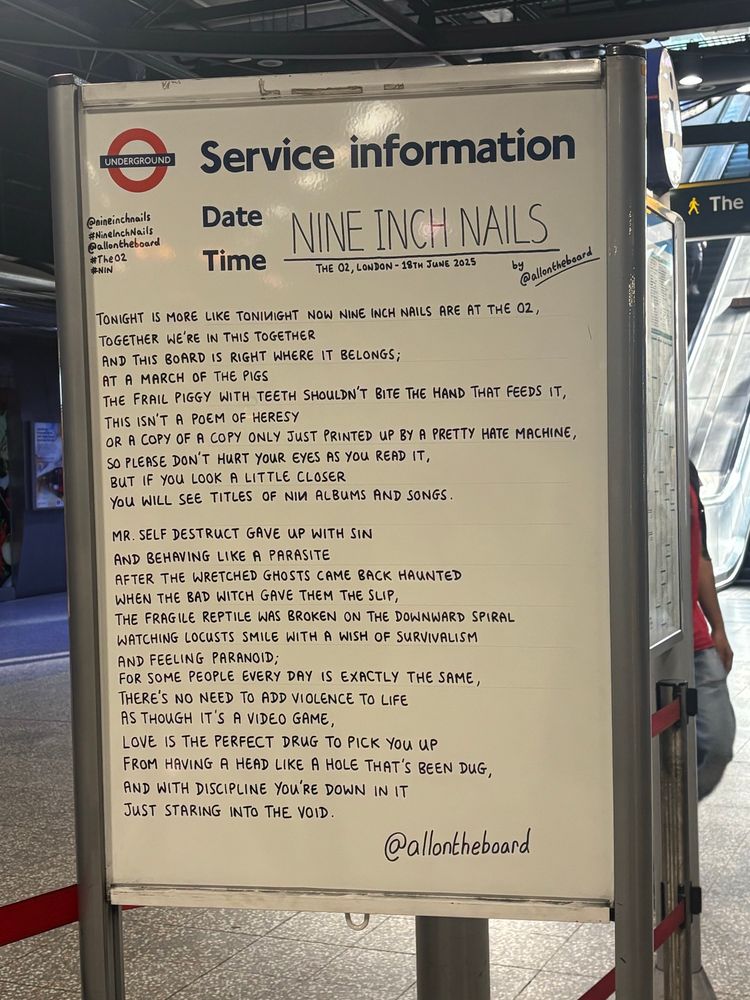 UNDERGROUND
Service information
@nineinchnails
#NineInchNails
@allontheboard
#TheO2
#NIN
Date
Time
NINE INCH NAILS
THE O2, LONDON - 18TH JUNE 2025
by @allontheboard
TONIGHT IS MORE LIKE TONIИIGHT NOW NINE INCH NAILS ARE AT THE O2,
TOGETHER WE'RE IN THIS TOGETHER
AND THIS BOARD IS RIGHT WHERE IT BELONGS;
AT A MARCH OF THE PIGS
THE FRAIL PIGGY WITH TEETH SHOULDN'T BITE THE HAND THAT FEEDS IT,
THIS ISN'T A POEM OF HERESY
OR A COPY OF A COPY ONLY JUST PRINTED UP BY A PRETTY HATE MACHINE,
SO PLEASE DON'T HURT YOUR EYES AS YOU READ IT,
BUT IF YOU LOOK A LITTLE CLOSER
YOU WILL SEE TITLES OF NIИ ALBUMS AND SONGS.
MR. SELF DESTRUCT GAVE UP WITH SIN
AND BEHAVING LIKE A PARASITE
AFTER THE WRETCHED GHOSTS CAME BACK HAUNTED
WHEN THE BAD WITCH GAVE THEM THE SLIP,
THE FRAGILE REPTILE WAS BROKEN ON THE DOWNWARD SPIRAL
WATCHING LOCUSTS SMILE WITH A WISH OF SURVIVALISM
AND FEELING PARANOID;
FOR SOME PEOPLE EVERY DAY IS EXACTLY THE SAME,
THERE'S NO NEED TO ADD VIOLENCE TO LIFE
AS THOUGH IT'S A VIDEO GAME,
LOVE IS THE PERFECT DRUG TO PICK YOU UP
FROM HAVING A HEAD LIKE A HOLE THAT'S BEEN DUG,
AND WITH DISCIPLINE YOU'RE DOWN IN IT
JUST STARING INTO THE VOID.
@allontheboard
The